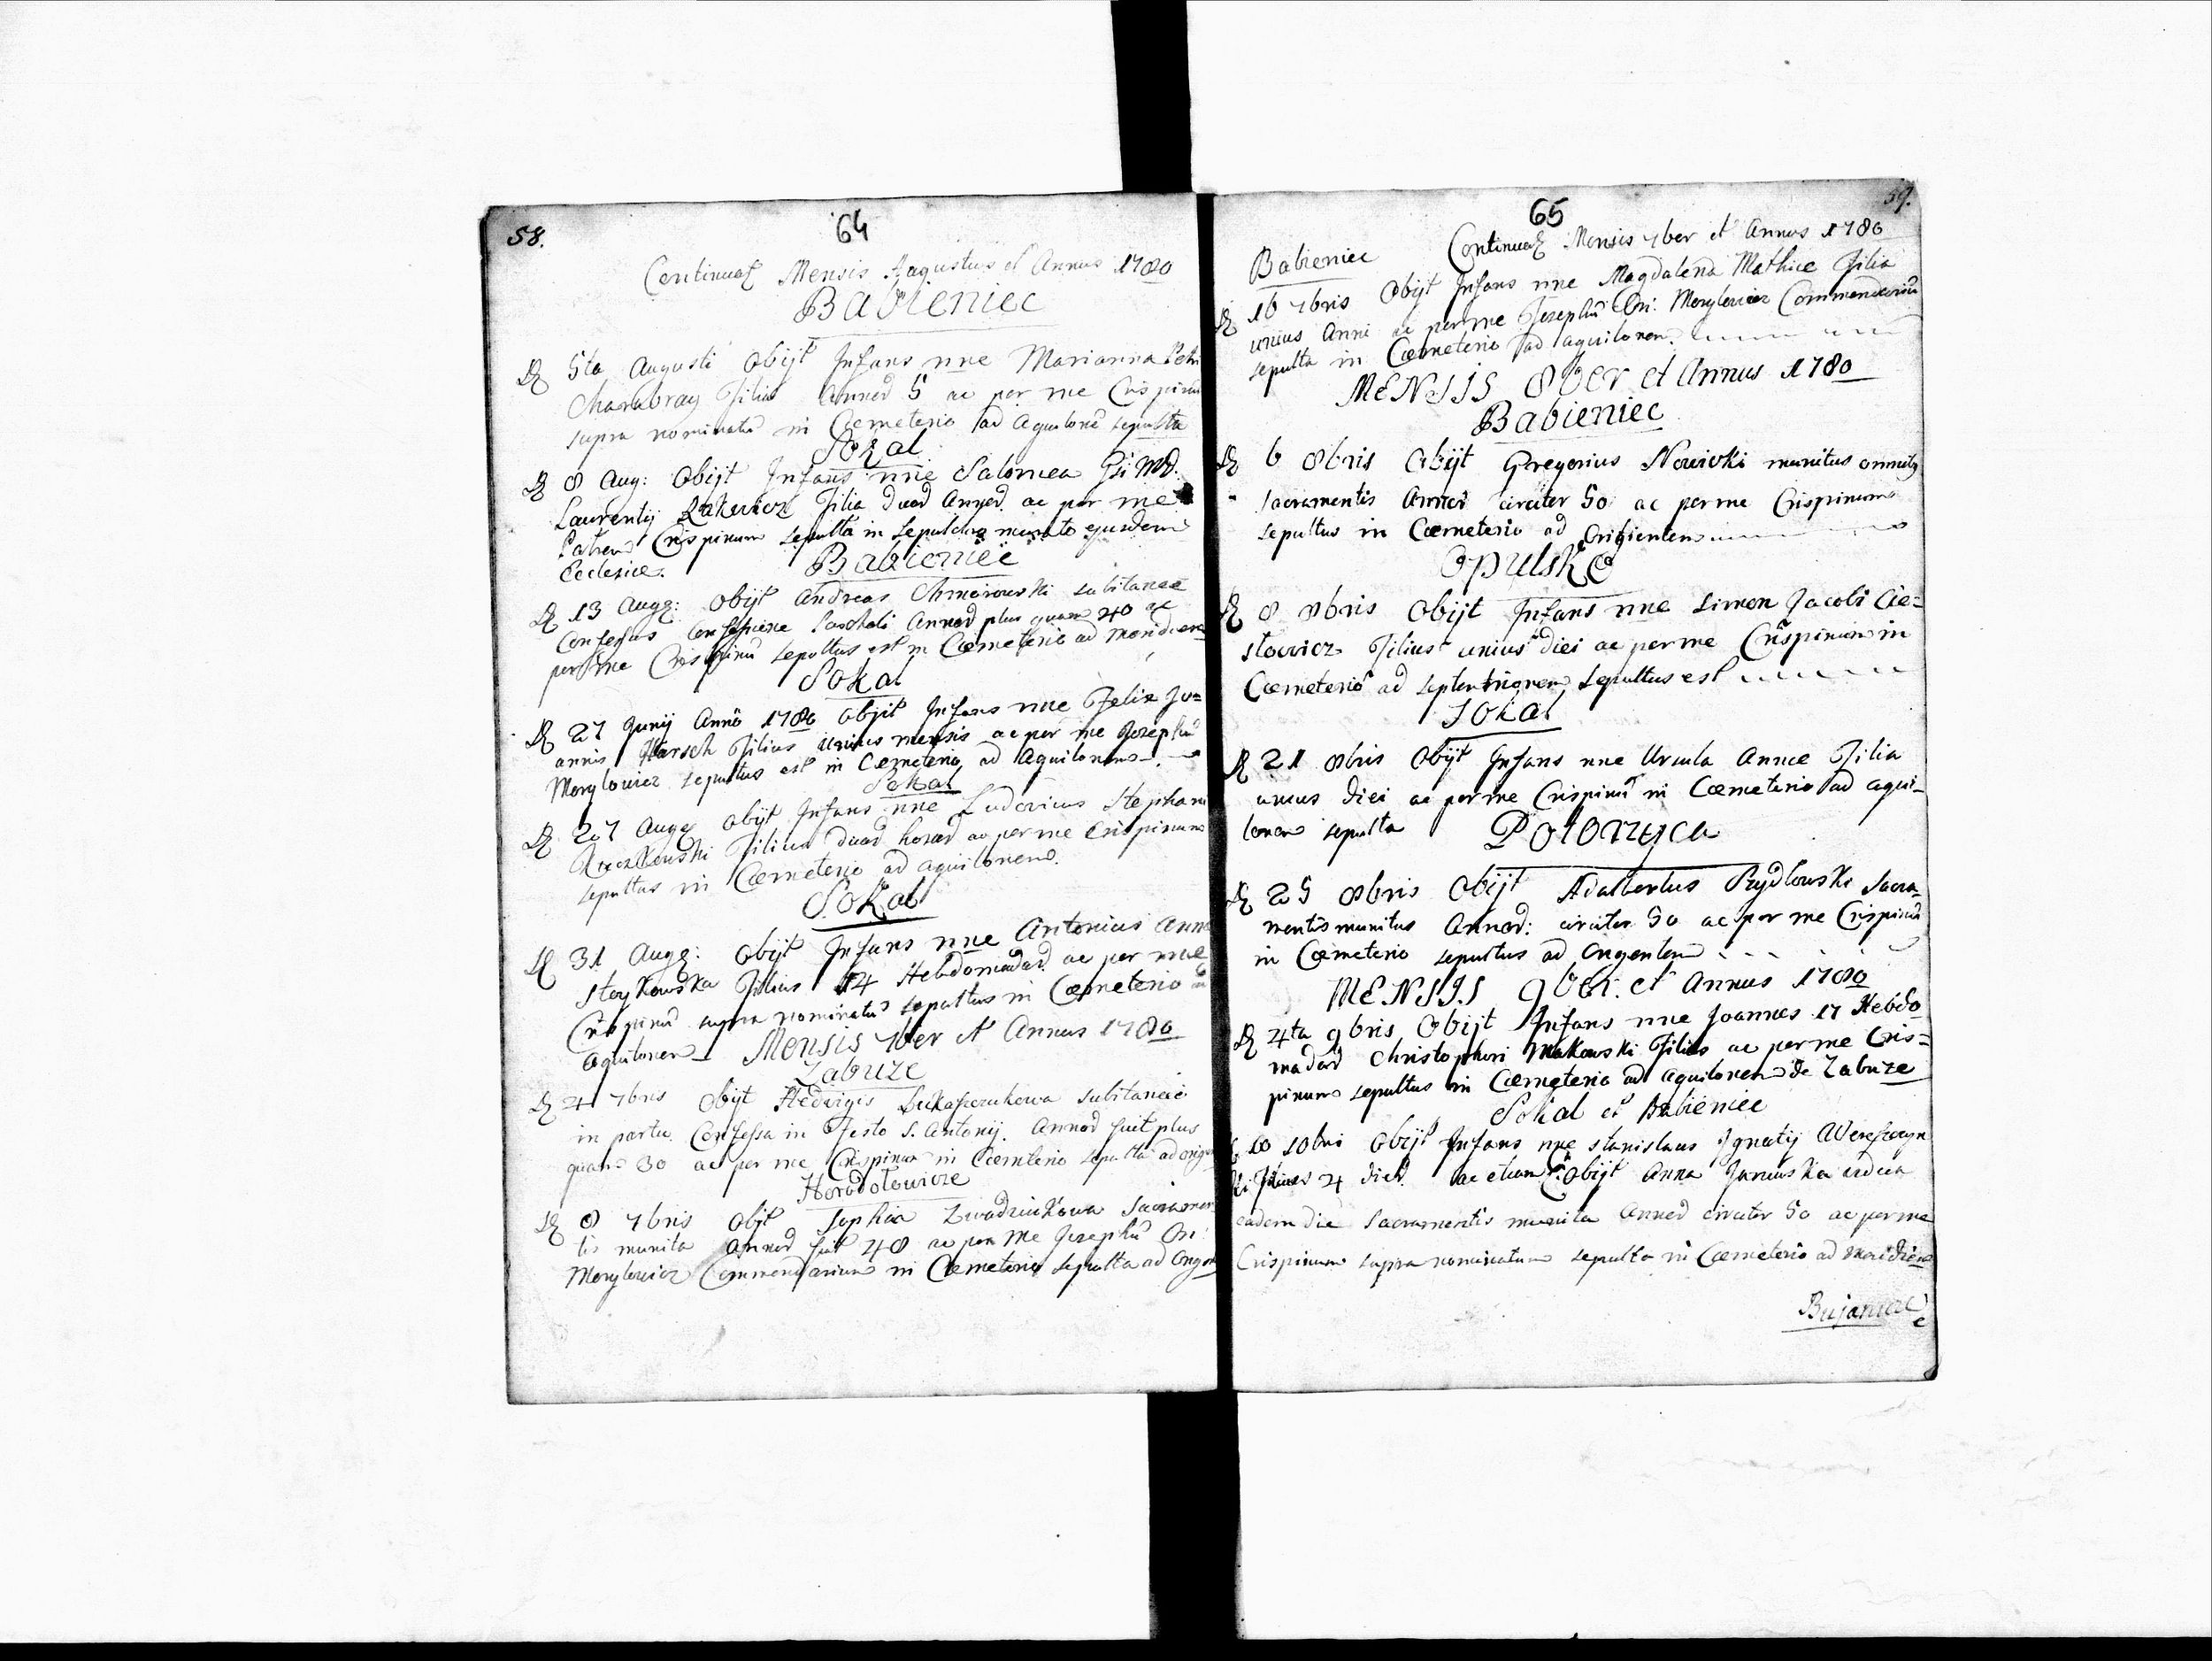 58.
64
Mensis Augustus et Annus 1780
Babieniec
5ta Augusti Obijt Infans nne Marianna Petri
Filia Annor 5 ac per me Crispinu
supra nominatu in Cœmeterio ad Aquilonē sepulta
Sokal
8 Aug: Obijt Infans nne Salomea Gsi MD.
Laurentij Filia duar Annor. ac per me
Patrem Crispinum sepulta in Sepulchro murato ejusdem
Ecclesiæ.
Babieniec
13 Augg: Obijt Andreas subitanee
Confessus Confessione Paschali Annor plus quam 40 ac
per me Crispinū sepultus est in Cœmeterio ad meridiem
Sokal
27 Junij Anno 1780 Obijt Infans nne Felix Jo=
annis Harsch Filius unius mensis ac per me Josephū
Morylowicz sepultus est in Cœmeterio ad Aquilonem
Sokal
27 Augg Obijt Infans nne Ludovicus Stephani
Filius duar horar ac per me Crispinum
sepultus in Cœmeterio ad aquilonem.
Sokal
31 Augg: Obijt Infans nne Antonius Anna
Filius 14 Hebdomadar. ac per me
Crispinū supra nominatū sepultus in Cœmeterio ad
Aquilonem
Mensis 7ber et Annus 1780
Zabuze
4 7bris Obijt Hedvigis subitanee
in partu. Confessa in Festo S. Antonij. Annor fuit plus
quam 30 ac per me Crispinum in Cœmeterio sepulta ad
8 7bris Obijt Sophia Sacramen
tis munita Annor fuit 48 ac per me Josephū Ori:
Morylowicz Commendarium in Cœmeterio sepulta ad
59.
65
Babieniec Mensis 7ber et Annus 1780
16 7bris Obijt Infans nne Magdalena Mathiæ Filia
unius Anni ac per me Josephū Ori: Morylowicz Commendariū
sepulta in Cœmeterio ad aquilonem.
MENSIS 8ber et Annus 1780
Babieniec
6 8bris Obijt Gregorius Nowicki munitus omnibq
sacramentis Annor circiter 50 ac per me Crispinum
sepultus in Cœmeterio ad Orientem
Opulsko
8 8bris Obijt Infans nne Simon Jacobi Cie=
slowicz Filius unius diei ac per me Crispinum in
Cœmeterio ad septentrionem sepultus est
Sokal
21 8bris Obijt Infans nne Ursula Annæ Filia
unius diei ac per me Crispinū in Cœmeterio ad aqui-
lonem sepulta
Potorzyca
25 8bris Obijt Adalbertus Szydlowski Sacra-
mentis munitus Annor: circiter 50 ac per me Crispinū
in Cœmeterio sepultus ad
MENSIS 9ber. et Annus 1780
4ta 9bris Obijt Infans nne Joannes 17 Hebdo
madar Christophori Makowski Filius ac per me Cris=
pinum sepultus in Cœmeterio ad aquilonem de Zabuze
Sokal et Babieniec
10 10bri Obijt Infans nne Stanislaus Ignatij
Filius 4 dier. ac etiam Obijt Anna
eadem die Sacramentis munita Annor circiter 50 ac per me
Crispinum supra nominatum sepulta in Cœmeterio ad meridiem